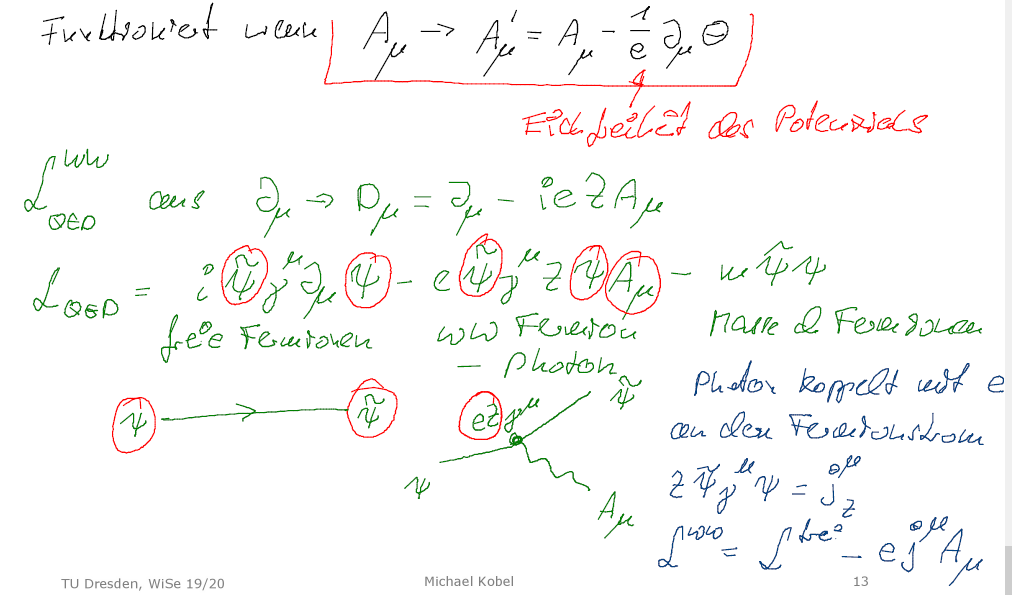 Funktioniert wenn A_μ → A'_μ = A_μ - 1/e ∂_μ Θ
Eichfreiheit des Potenzials
ℒ^WW_QED aus ∂_μ → D_μ = ∂_μ - ieZA_μ
ℒ_QED = i ψ̃ γ^μ ∂_μ ψ - e ψ̃ γ^μ Z ψ A_μ - m ψ̃ ψ
freie Fermionen
WW Fermion - Photon
Masse d Fermionen
ψ ψ̃
eZγ^μ ψ̃
ψ
A_μ
Photon koppelt mit e
an den Fermionstrom
Z ψ̃ γ^μ ψ = j^μ_Z
ℒ^WW = ℒ^frei - e j^μ A_μ
TU Dresden, WiSe 19/20
Michael Kobel
13